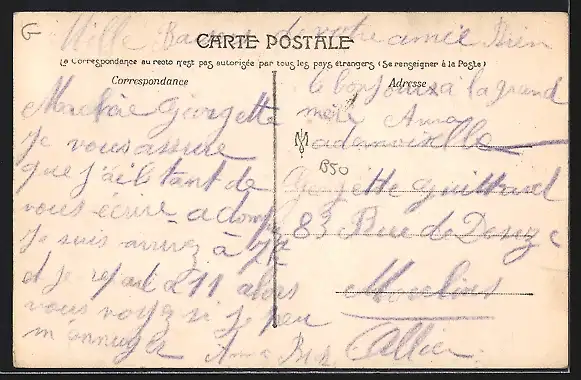 G
Mille Baisers de votre amie Bien
CARTE POSTALE
La Correspondance au recto n'est pas autorisée par tous les pays étrangers (Se renseigner à la Poste)
Correspondance
Ma chère Georgette
Je vous assure
que j'ai tant de
vous écrire
je suis arrivez à
et je repart à 11 alors
vous voyez si je peu
m'ennuyer Anna
Adresse
le bonjour à la grand
mère Anna
Mademoiselle
B50
Georgette
83 Rue de
Moulins
Allier